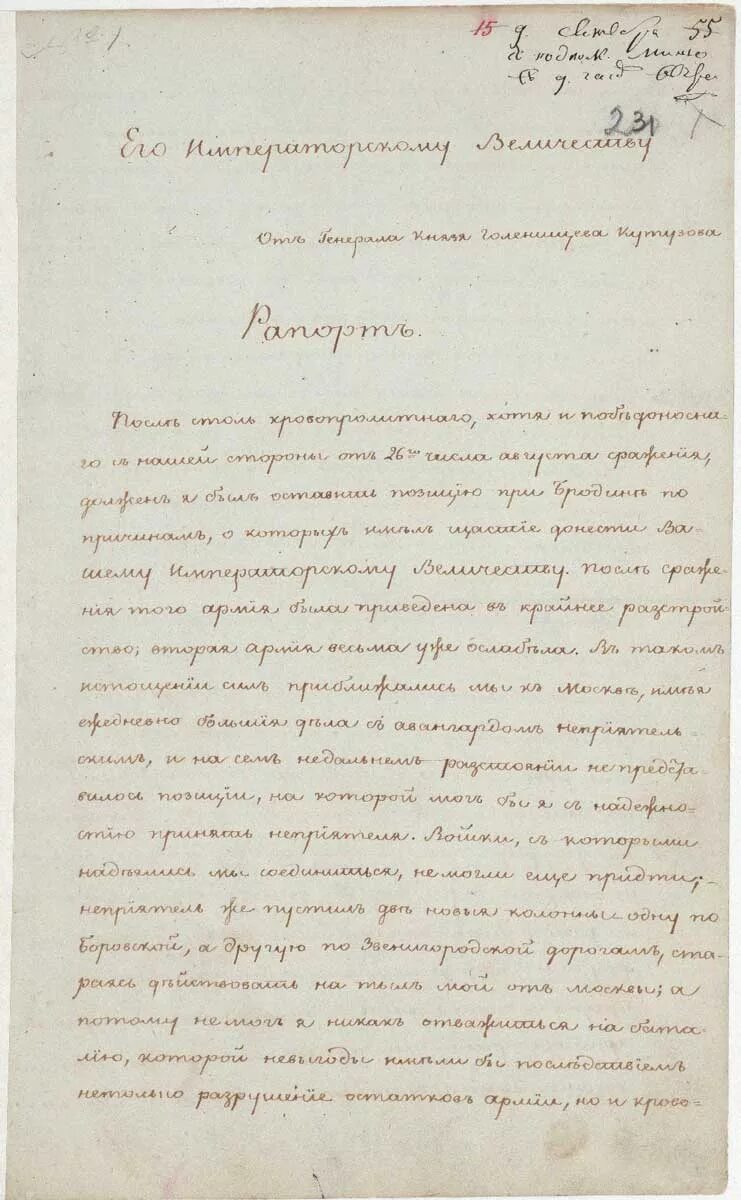 15 д. 55
231
Его Императорскому Величеству
Отъ Генерала Князя Голенищева Кутузова
Рапортъ.
Послѣ столь кровопролитнаго, хотя и побѣдоносна-
го съ нашей стороны отъ 26го числа августа сраженія,
долженъ я былъ оставить позицію при Бродинѣ по
причинамъ, о которыхъ имѣлъ щастіе донести Ва-
шему Императорскому Величеству. Послѣ сраже-
нія того армія была приведена въ крайнее разстрой-
ство; вторая армія весьма уже ослабѣла. Въ такомъ
истощеніи силъ приближались мы къ Москвѣ, имѣя
ежедневно большія дѣла съ авангардомъ неприятель-
скимъ, и на семъ недальнемъ разстояніи не предста-
вилось позиціи, на которой могъ бы я съ надежно-
стію принять непріятеля. Войски, съ которыми
надѣялись мы соединиться, не могли еще придти;
непріятель же пустилъ двѣ новыя колонны одну по
Боровской, а другую по Звенигородской дорогамъ, ста-
раясь дѣйствовать на тылъ мой отъ Москвы; а
потому не могъ я никакъ отважиться на бата-
лію, которой невыгоды имѣли бы послѣдствіемъ
нетолько разрушеніе остатковъ арміи, но и крово-